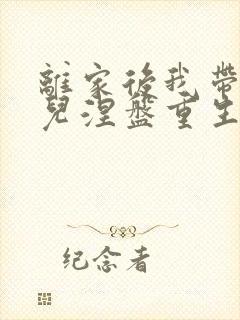 離家後我帶
兒涅盤重生
纪念者